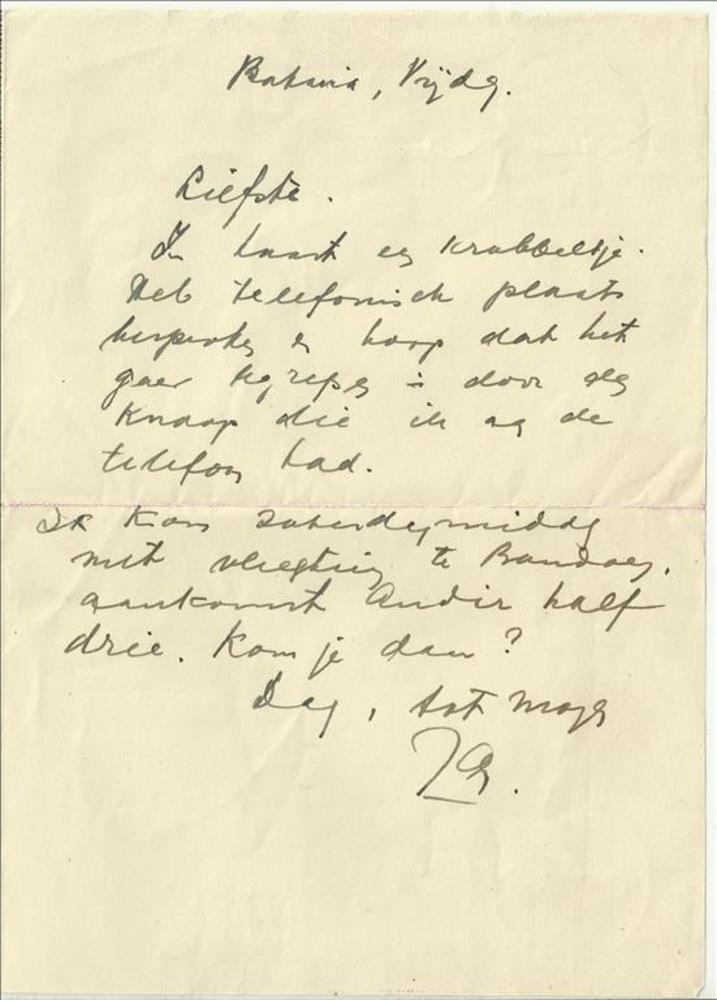 Batavia, Vrijdag.
Liefste.
In haast een krabbeltje.
Heb telefonisch plaats
besproken en hoop dat het
goed begrepen is door den
knaap die ik aan de
telefoon had.
Ik kom Zaterdagmiddag
met vliegtuig te Bandoeng.
aankomst Andir half
drie. Kom je dan?
Dag, tot morgen